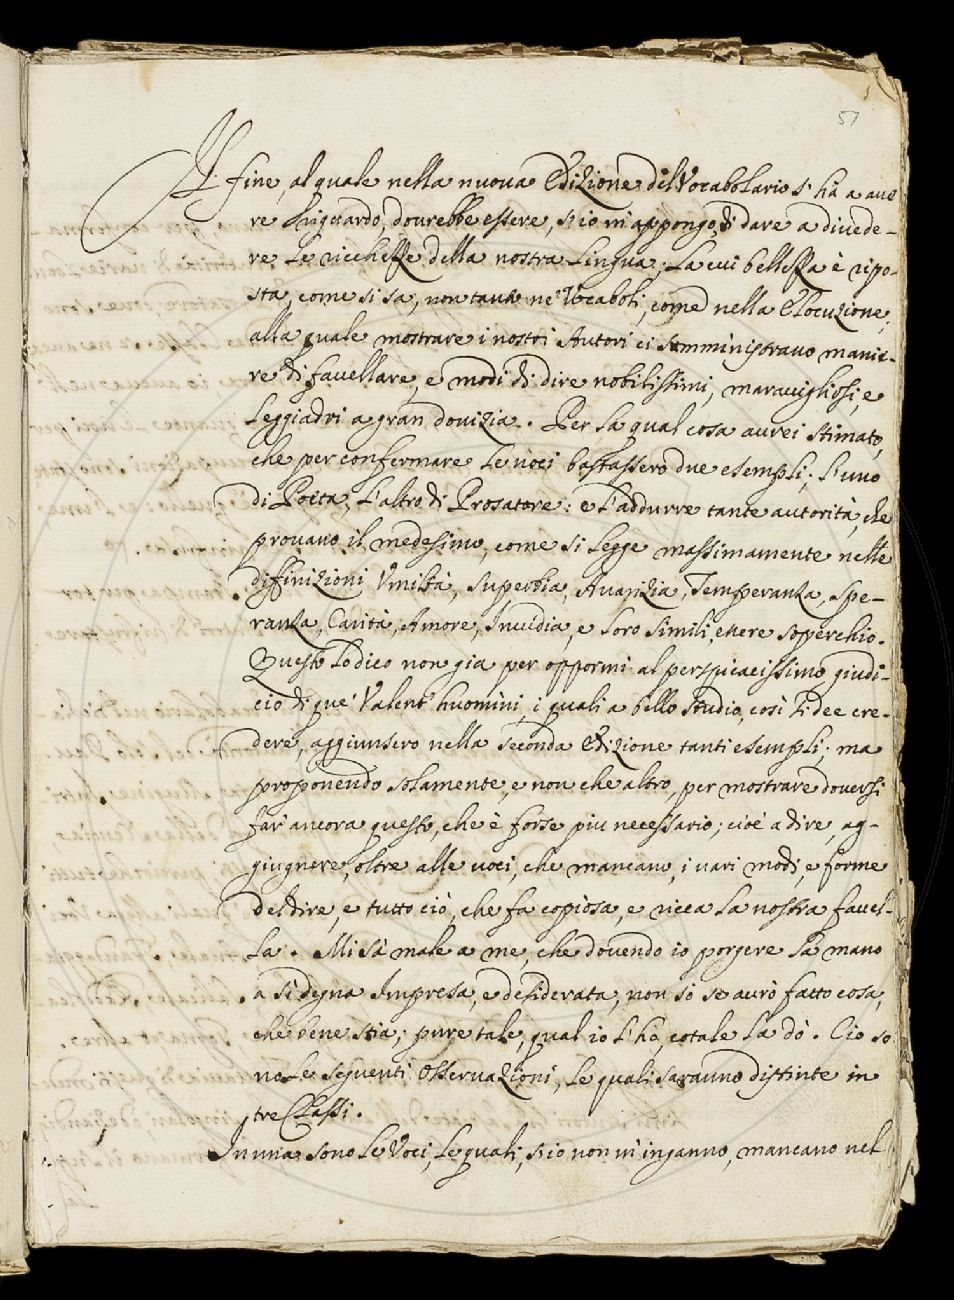 51
Il fine, al quale nella nuova Edizione del Vocabolario s'ha a aue
re riguardo, dourebbe essere, s'io m'appongo, di dare a diuede-
re le ricchezze della nostra Lingua; La cui bellezza è ripo-
sta, come si sa, non tanto ne' Vocaboli, come nella Elocuzione;
alla quale mostrare i nostri Autori ci somministrano manie-
re di fauellare, e modi di dire nobilissimi, marauigliosi, e
leggiadri a gran douizia. Per la qual cosa aurei stimato,
che per confermare le uoci bastassero due esempli; l'uno
di Poeta, l'altro di Prosatore: e l'addurre tante autorità, che
prouano il medesimo, come si legge massimamente nelle
diffinizioni Vmiltà, Superbia, Auarizia, Temperanza, Spe-
ranza, Carità, Amore, Inuidia, e loro simili, essere souerchio.
Questo lo dico non gia per oppormi al perspicacissimo giudi-
cio di que' Valent'huomini, i quali a bello studio, così si dee cre-
dere, aggiunsero nella seconda Edizione tanti esempli; ma
proponendo solamente, e non che altro, per mostrare douersi
far' ancora questo, che è forse piu necessario; cioè a dire, ag-
giugnere, oltre alle uoci, che mancano, i uari modi, e forme
del dire, e tutto ciò, che fa copiosa, e ricca la nostra fauel-
la. Mi sà male a me, che douendo io porgere la mano
a sì degna Impresa, e desiderata, non sò se aurò fatto cosa,
che bene stia; pure tale, qual io l'hò, cotale la dò. Ciò so
no le seguenti Osseruazioni, le quali saranno distinte in
tre Classi.
In una sono le Voci, le quali, s'io non m'inganno, mancano nel